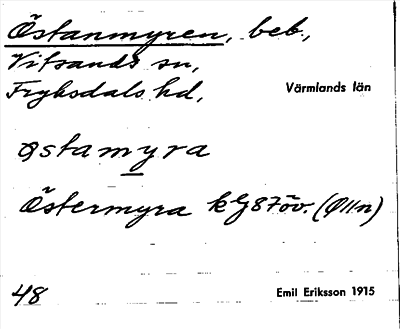 Östanmyren, beb.,
Vitsands sn,
Fryksdals hd, Värmlands län
østamyra
Östermyra
48 Emil Eriksson 1915